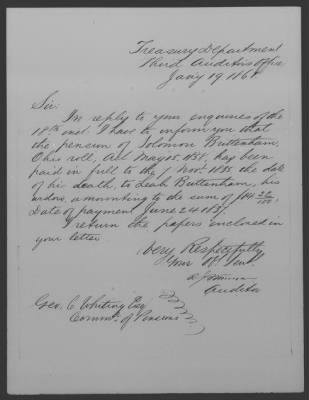 Treasury Department
Third Auditor's Office
Jan'y 19 186
Sir:
In reply to your enquiries of the
18th inst. I have to inform you that
the pension of Solomon Buttenham,
Ohio roll, Act May 15. 1828, has been
paid in full to the 1 Nov. 1835, the date
of his death, to Leah Buttenham, his
widow, amounting to the sum of $
Date of payment June 24 1837.
I return the papers inclosed in
your letter.
Very Respectfully
Your Ob. Serv't
Auditor
Geo. C. Whiting Esq
Commr. of Pensions